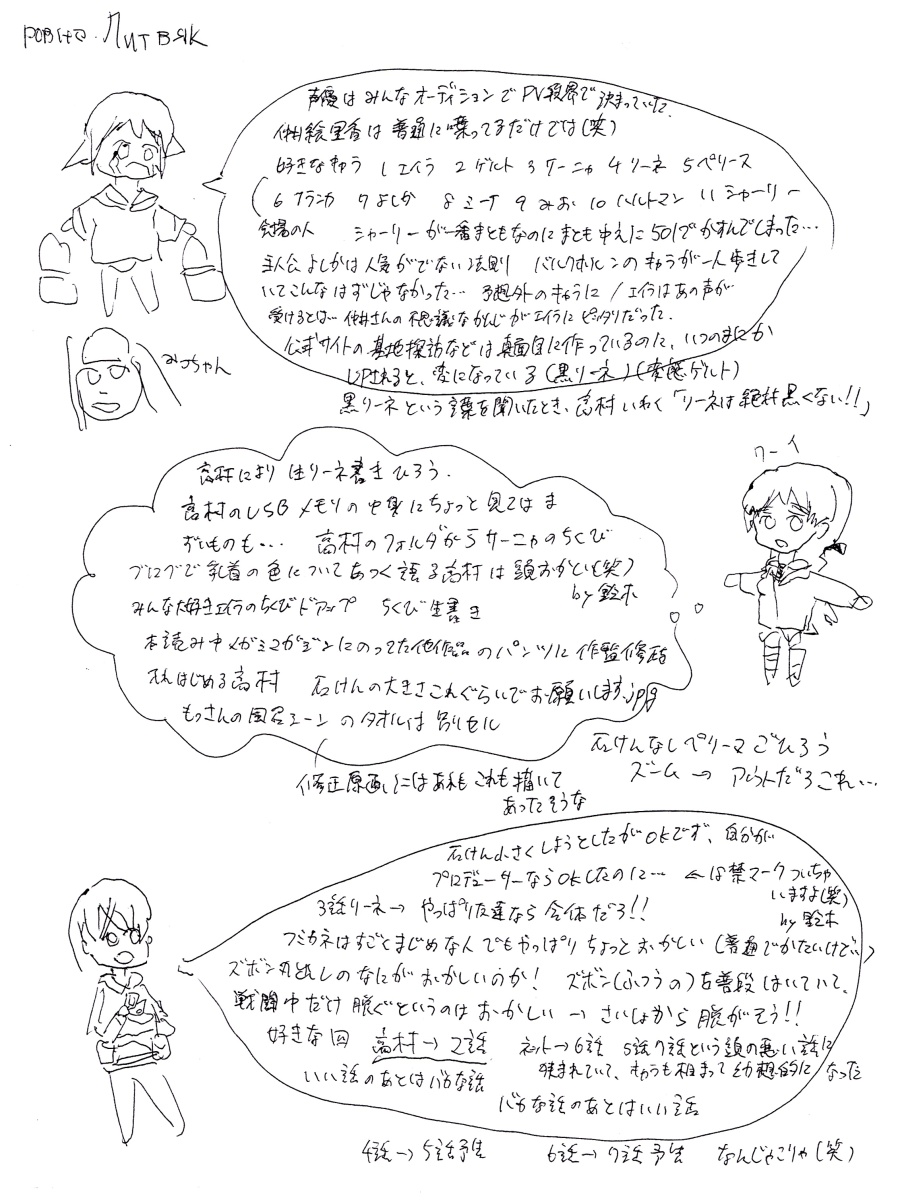 ЛИТВЯК
声優はみんなオーディションでPV段界で決まっていた
仲井絵里香は普通に喋ってるだけでは(笑)
好きなキャラ 1エイラ 2ゲルト 3サーニャ 4リーネ 5ペリーヌ
6 ルッキーニ 7よしか 8ミーナ 9みお 10ハルトマン 11シャーリー
会場の人 シャーリーが一番まともなのにまともゆえに501でかすんでしまった…
主人公よしかは人気がでない法則 バルクホルンのキャラが一人歩きして
いてこんなはずじゃなかった… 予想外のキャラに / エイラはあの声が
受けるとは… 仲井さんの不思議なかんじがエイラにピッタリだった.
公式サイトの基地探訪などは真面目に作っているのに、いつのまにか
UPされると、変になっている(黒リーネ)(変態ゲルト)
黒リーネという言葉を聞いたとき、高村いわく「リーネは絶対黒くない!!」
みオちゃん
ワーイ
高村により生リーネ書きひろう.
高村のUSBメモリの中身にちょっと見てはま
ずいものも… 高村のフォルダからサーニャのちくび
ブログで乳首の色についてあつく語る高村は頭おかしい(笑)
by 鈴木
みんな大好きエイラのちくびドアップ ちくび生書き
本読み中メガミマガジンにのってた他作品のパンツに作監修正
入れはじめる高村 石けんの大きさこれぐらいでお願いします.jpg
もっさんの風呂シーンのタオルは別セル
石けんなしペリーヌごひろう
ズーム → アウトだろこれ…
修正原画にはあれもこれも描いて
あったそうな
石けん小さくしようとしたがOKでず、自分が
プロデューサーならOKしたのに… ← 18禁マークついちゃ
いますよ(笑)
by 鈴木
3話リーネ→ やっぱり友達なら合体だろ!!
フミカネはすごくまじめな人でもやっぱりちょっとおかしい(普通でかたいけど…)
ズボン丸出しのなにがおかしいのか! ズボン(ふつうの)を普段はいていて、
戦闘中だけ脱ぐというのはおかしい → さいしょから脱がそう!!
好きな回 高村→2話 ネット→6話 5話7話という頭の悪い話に
挟まれていて、キャラも相まって幻想的になった
いい話のあとはバカな話
バカな話のあとはいい話
4話→5話予告 6話→7話予告 なんじゃこりゃ(笑)